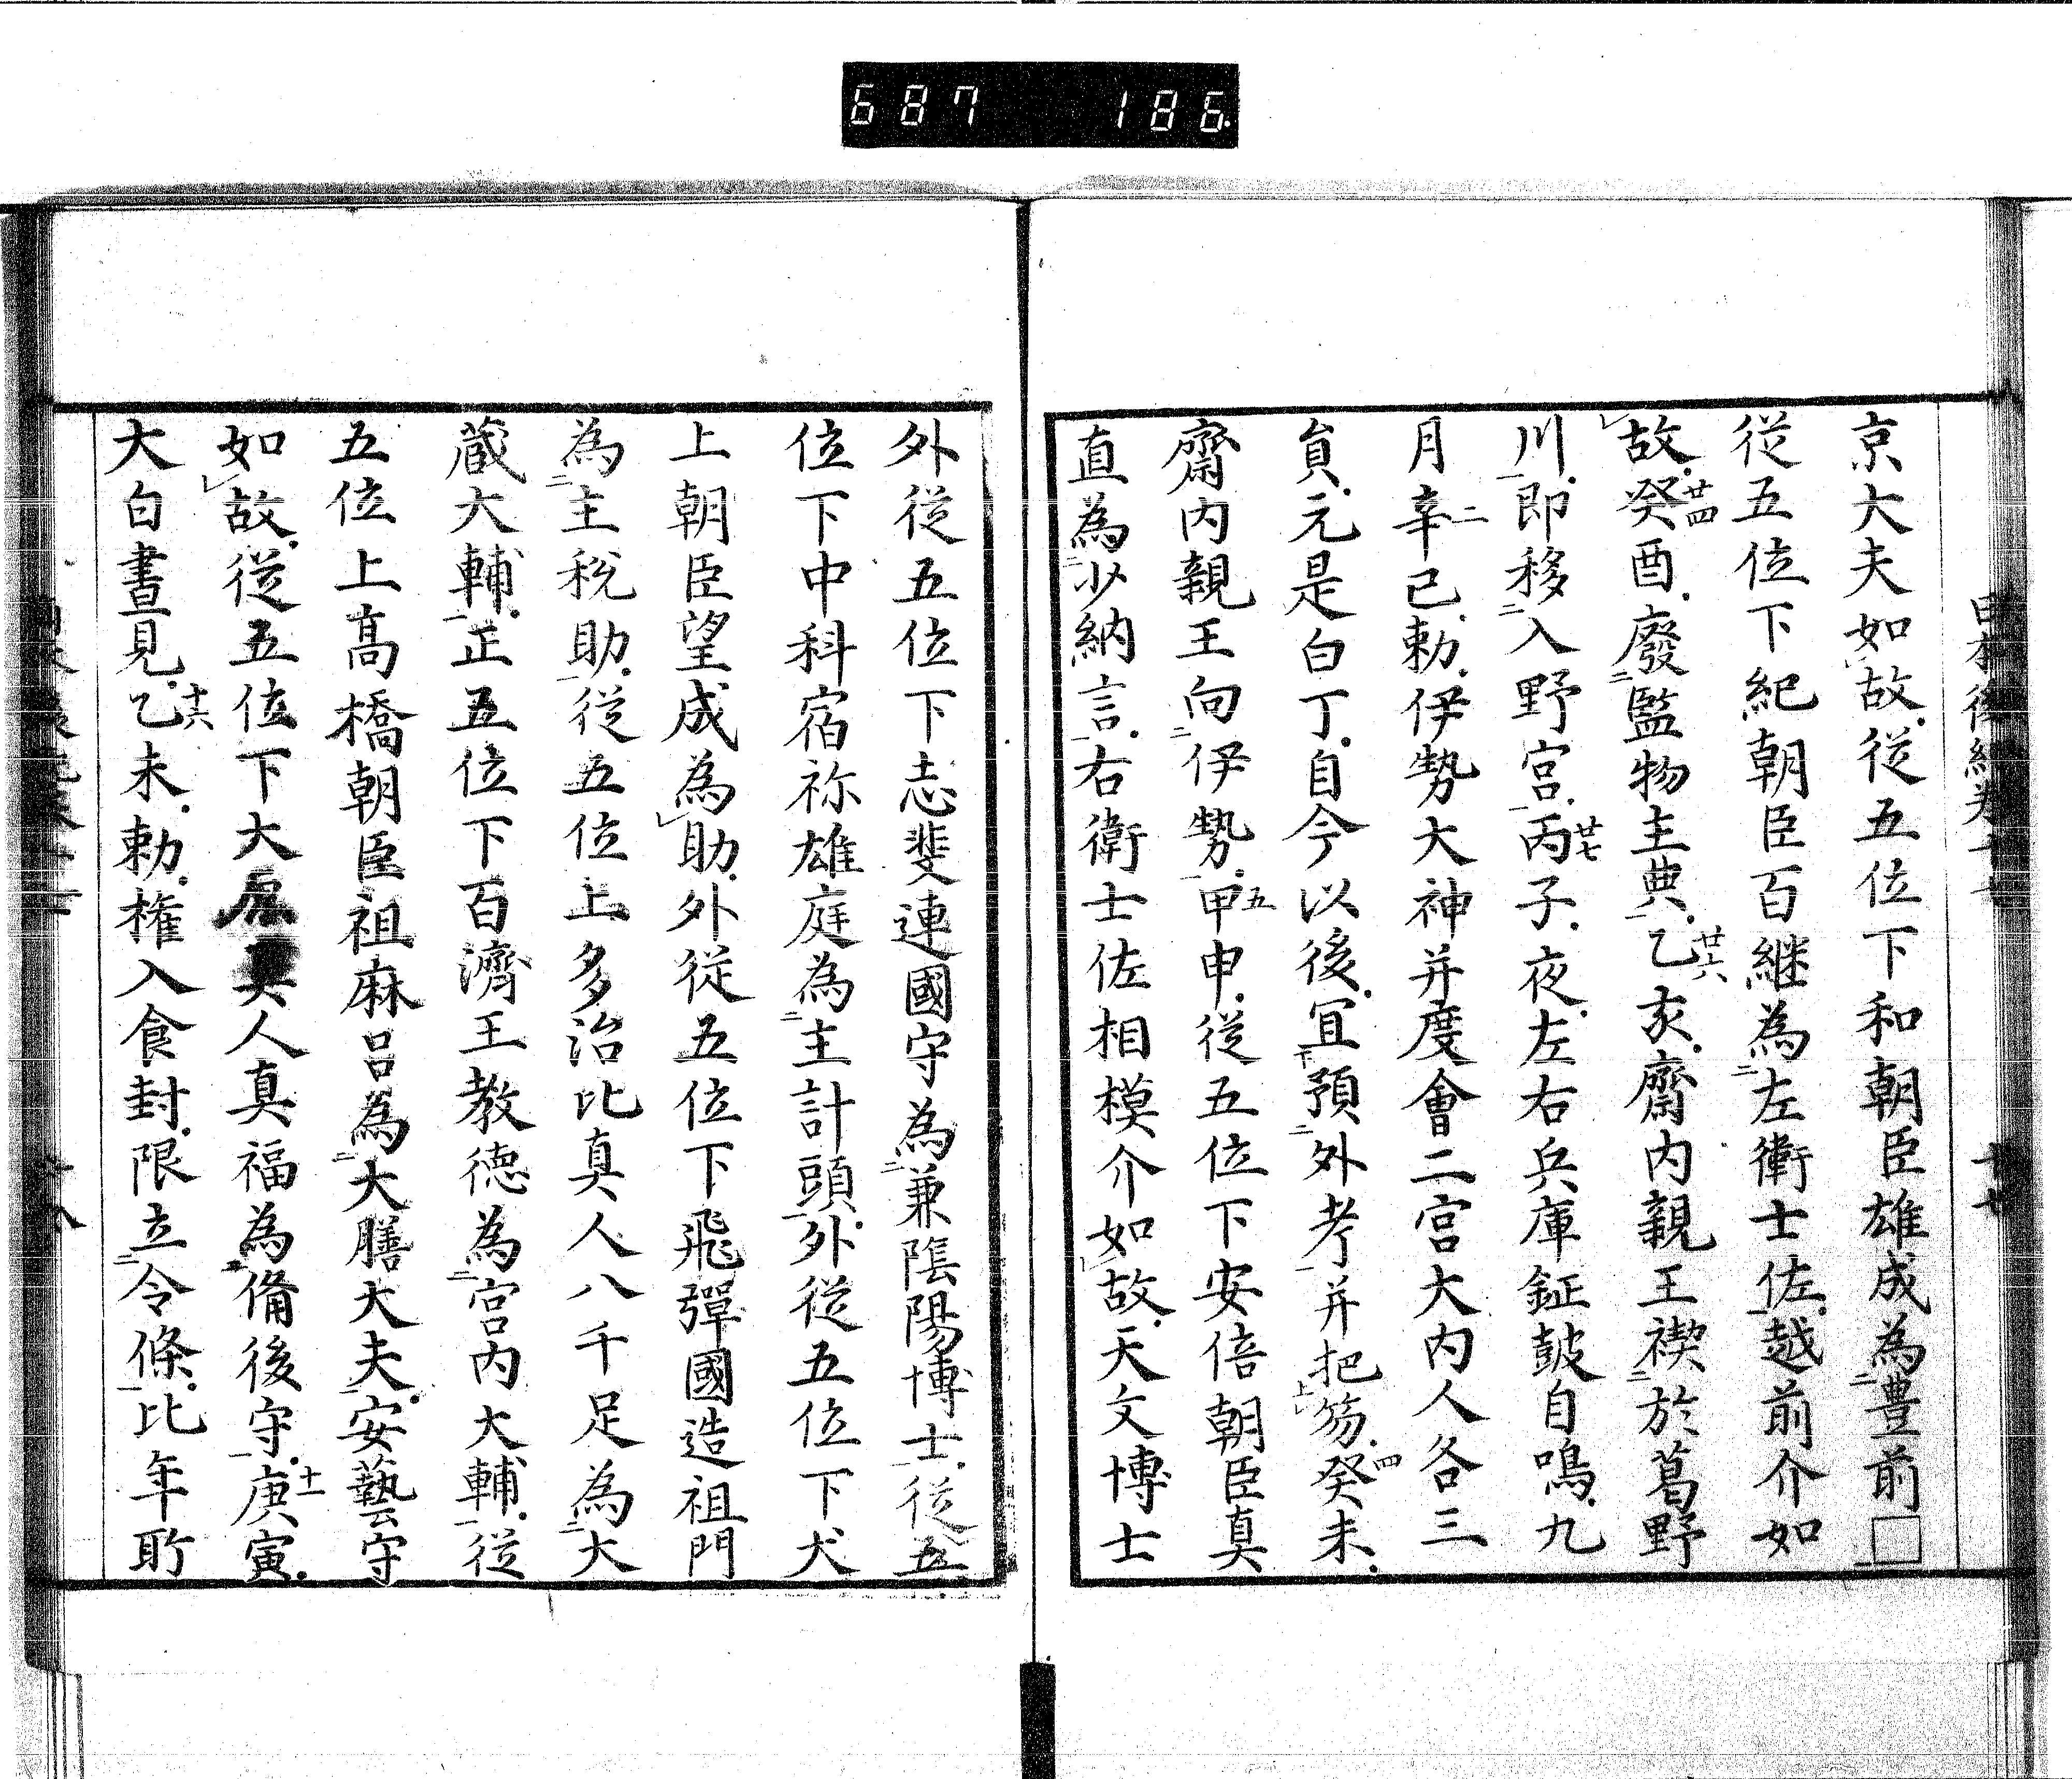 687 186
京大夫如故從五位下和朝臣雄成為豊前□
從五位下紀朝臣百継為左衛士佐越前介如
故癸酉廢監物主典乙亥齋内親王禊於葛野
川即移入野宮丙子夜左右兵庫鉦鼓自鳴九
月辛已勅伊勢大神并度會二宮大内人各三
員元是白丁自今以後冝預外考并把笏癸未
齋内親王向伊勢甲申從五位下安倍朝臣真
直為少納言右衛士佐相模介如故天文博士
外從五位下志斐連國守為兼隂陽博士從五
位下中科宿祢雄庭為主計頭外從五位下犬
上朝臣望成為助外從五位下飛彈國造祖門
為主税助從五位上多治比真人八千足為大
蔵大輔正五位下百濟王教德為宮内大輔從
五位上高橋朝臣祖麻呂為大膳大夫安藝守
如故從五位下大原真人真福為備後守庚寅
大白晝見乙未勅権入食封限立令條比年所